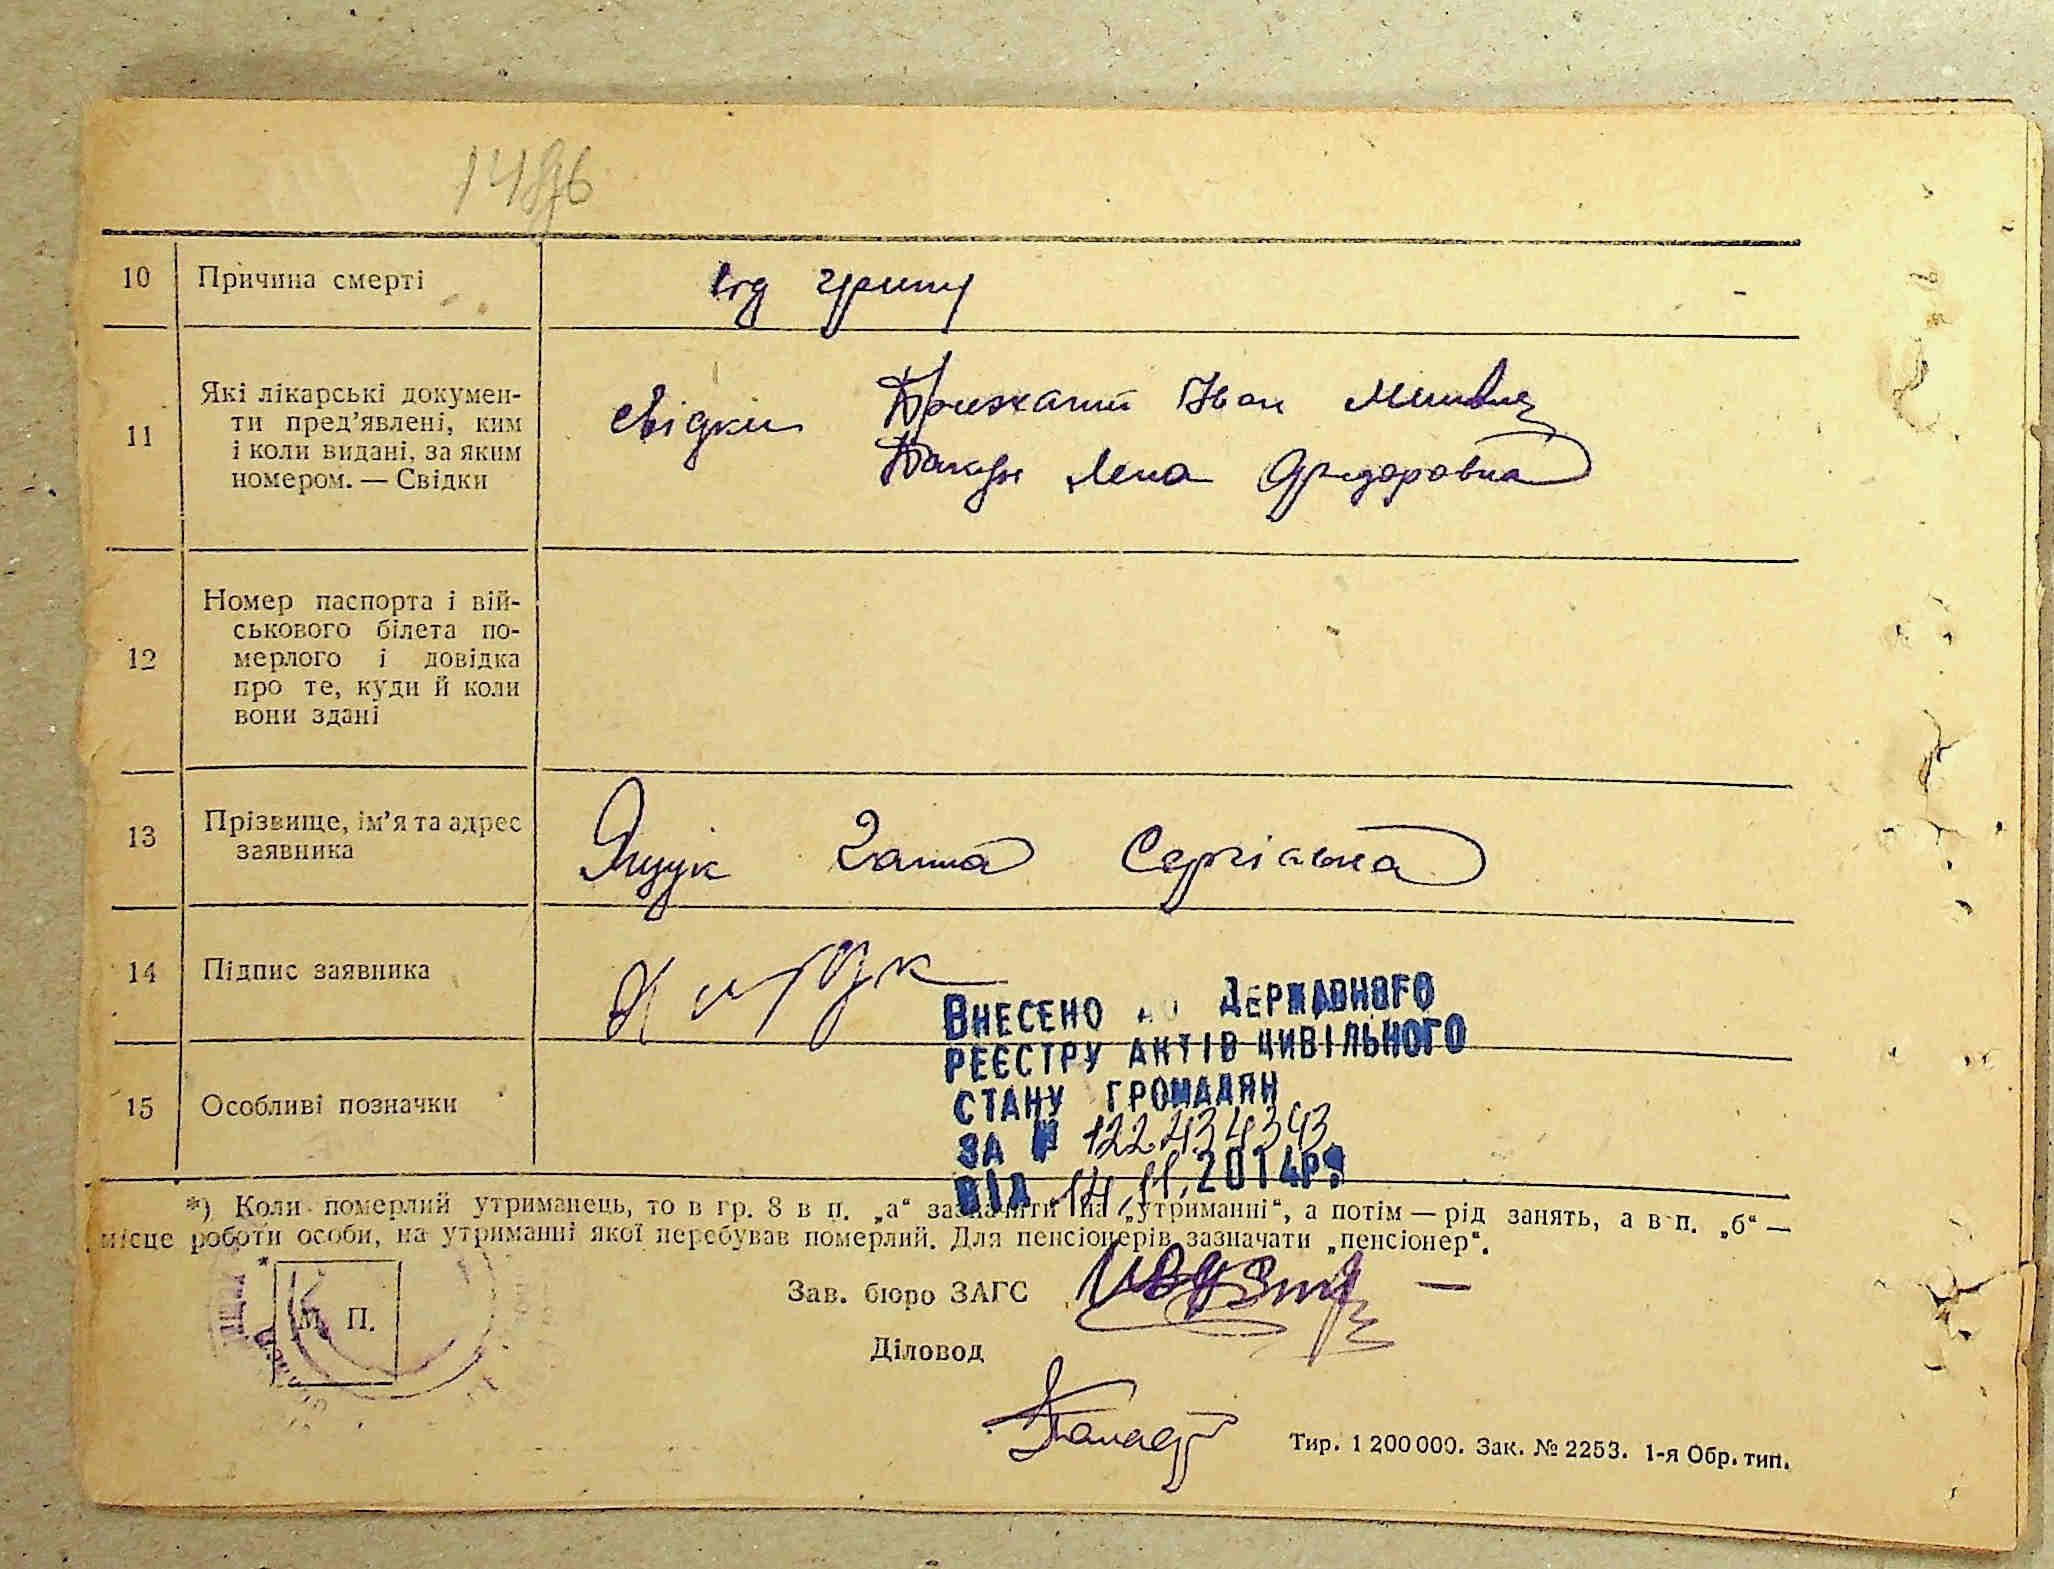 10 Причина смерті від грипу
11 Які лікарські докумен-
ти пред’явлені, ким
і коли видані, за яким
номером. — Свідки
свідки Іван
Лена Федоровна
12 Номер паспорта і вій-
ськового білета по-
мерлого і довідка
про те, куди й коли
вони здані
13 Прізвище, ім’я та адрес
заявника
Ящук Ганна Сергіевна
14 Підпис заявника
Внесено до Державного
реєстру актів цивільного
стану громадян
за № 122434343
від 14.11.2014р.
15 Особливі позначки
*) Коли померлий утриманець, то в гр. 8 в п. „а“ зазначити „на утриманні“, а потім — рід занять, а в п. „б“ —
місце роботи особи, на утриманні якої перебував померлий. Для пенсіонерів зазначати „пенсіонер“.
М. П.
Зав. бюро ЗАГС
Діловод
Тир. 1 200 000. Зак. № 2253. 1-я Обр. тип.